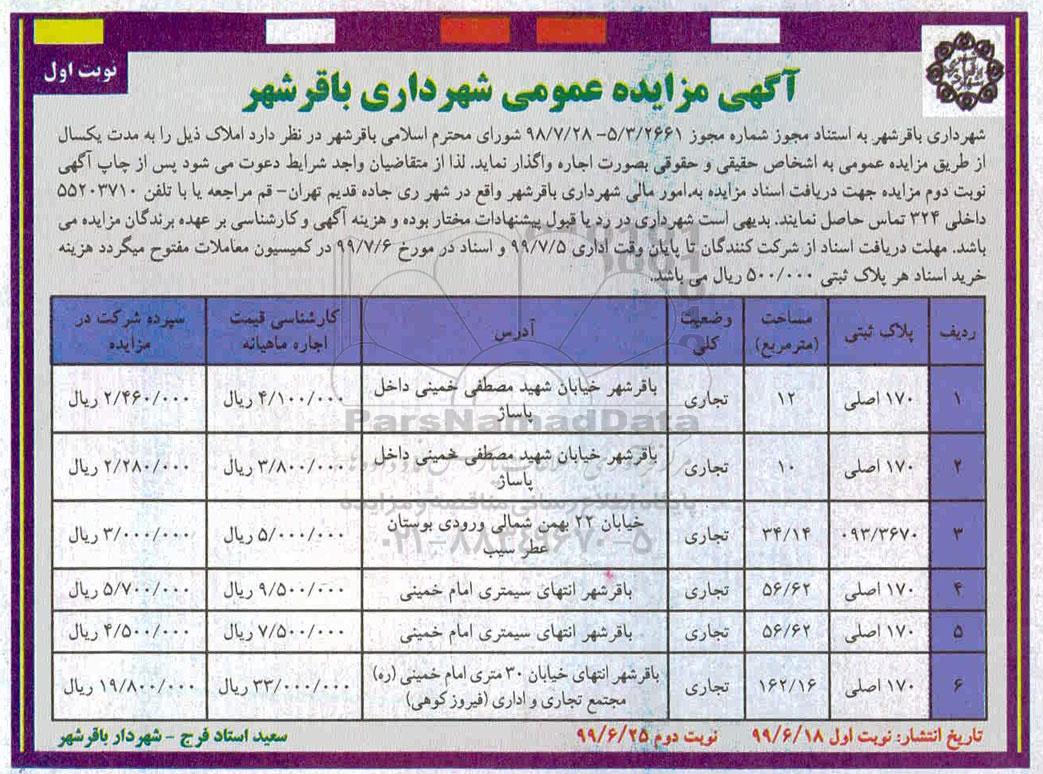 نوبت اول
آگهی مزایده عمومی شهرداری باقرشهر
شهرداری باقرشهر به استناد مجوز شماره مجوز ۵/۳/۲۶۶۱- ۹۸/۷/۲۸ شورای محترم اسلامی باقرشهر در نظر دارد املاک ذیل را به مدت یکسال
از طریق مزایده عمومی به اشخاص حقیقی و حقوقی بصورت اجاره واگذار نماید. لذا از متقاضیان واجد شرایط دعوت می شود پس از چاپ آگهی
نوبت دوم مزایده جهت دریافت اسناد مزایده به.امور مالی شهرداری باقرشهر واقع در شهر ری جاده قدیم تهران- قم مراجعه یا با تلفن ۵۵۲۰۳۷۱۰
داخلی ۳۲۴ تماس حاصل نمایند. بدیهی است شهرداری در رد یا قبول پیشنهادات مختار بوده و هزینه آگهی و کارشناسی بر عهده برندگان مزایده می
باشد. مهلت دریافت اسناد از شرکت کنندگان تا پایان وقت اداری ۹۹/۷/۵ و اسناد در مورخ ۹۹/۷/۶ در کمیسیون معاملات مفتوح میگردد هزینه
خرید اسناد هر پلاک ثبتی ۵۰۰/۰۰۰ ریال می باشد.
ردیف پلاک ثبتی مساحت (مترمربع) وضعیت کلی آدرس کارشناسی قیمت اجاره ماهیانه سپرده شرکت در مزایده
۱ ۱۷۰ اصلی ۱۲ تجاری باقرشهر خیابان شهید مصطفی خمینی داخل پاساژ ۴/۱۰۰/۰۰۰ ریال ۲/۴۶۰/۰۰۰ ریال
۲ ۱۷۰ اصلی ۱۰ تجاری باقرشهر خیابان شهید مصطفی خمینی داخل پاساژ ۳/۸۰۰/۰۰۰ ریال ۲/۲۸۰/۰۰۰ ریال
۳ ۰۹۳/۳۶۷۰ ۳۴/۱۴ تجاری خیابان ۲۲ بهمن شمالی ورودی بوستان عطر سیب ۵/۰۰۰/۰۰۰ ریال ۳/۰۰۰/۰۰۰ ریال
۴ ۱۷۰ اصلی ۵۶/۶۲ تجاری باقرشهر انتهای سیمتری امام خمینی ۹/۵۰۰/۰۰۰ ریال ۵/۷۰۰/۰۰۰ ریال
۵ ۱۷۰ اصلی ۵۶/۶۲ تجاری باقرشهر انتهای سیمتری امام خمینی ۷/۵۰۰/۰۰۰ ریال ۴/۵۰۰/۰۰۰ ریال
۶ ۱۷۰ اصلی ۱۶۲/۱۶ تجاری باقرشهر انتهای خیابان ۳۰ متری امام خمینی (ره) مجتمع تجاری و اداری (فیروزکوهی) ۳۳/۰۰۰/۰۰۰ ریال ۱۹/۸۰۰/۰۰۰ ریال
ParsNamadData
پایگاه اطلاع رسانی مناقصه و مزایده
۰۲۱-۸۸۳۴۹۶۷۰-۵
تاریخ انتشار: نوبت اول ۹۹/۶/۱۸ نوبت دوم ۹۹/۶/۲۵
سعید استاد فرج - شهردار باقرشهر